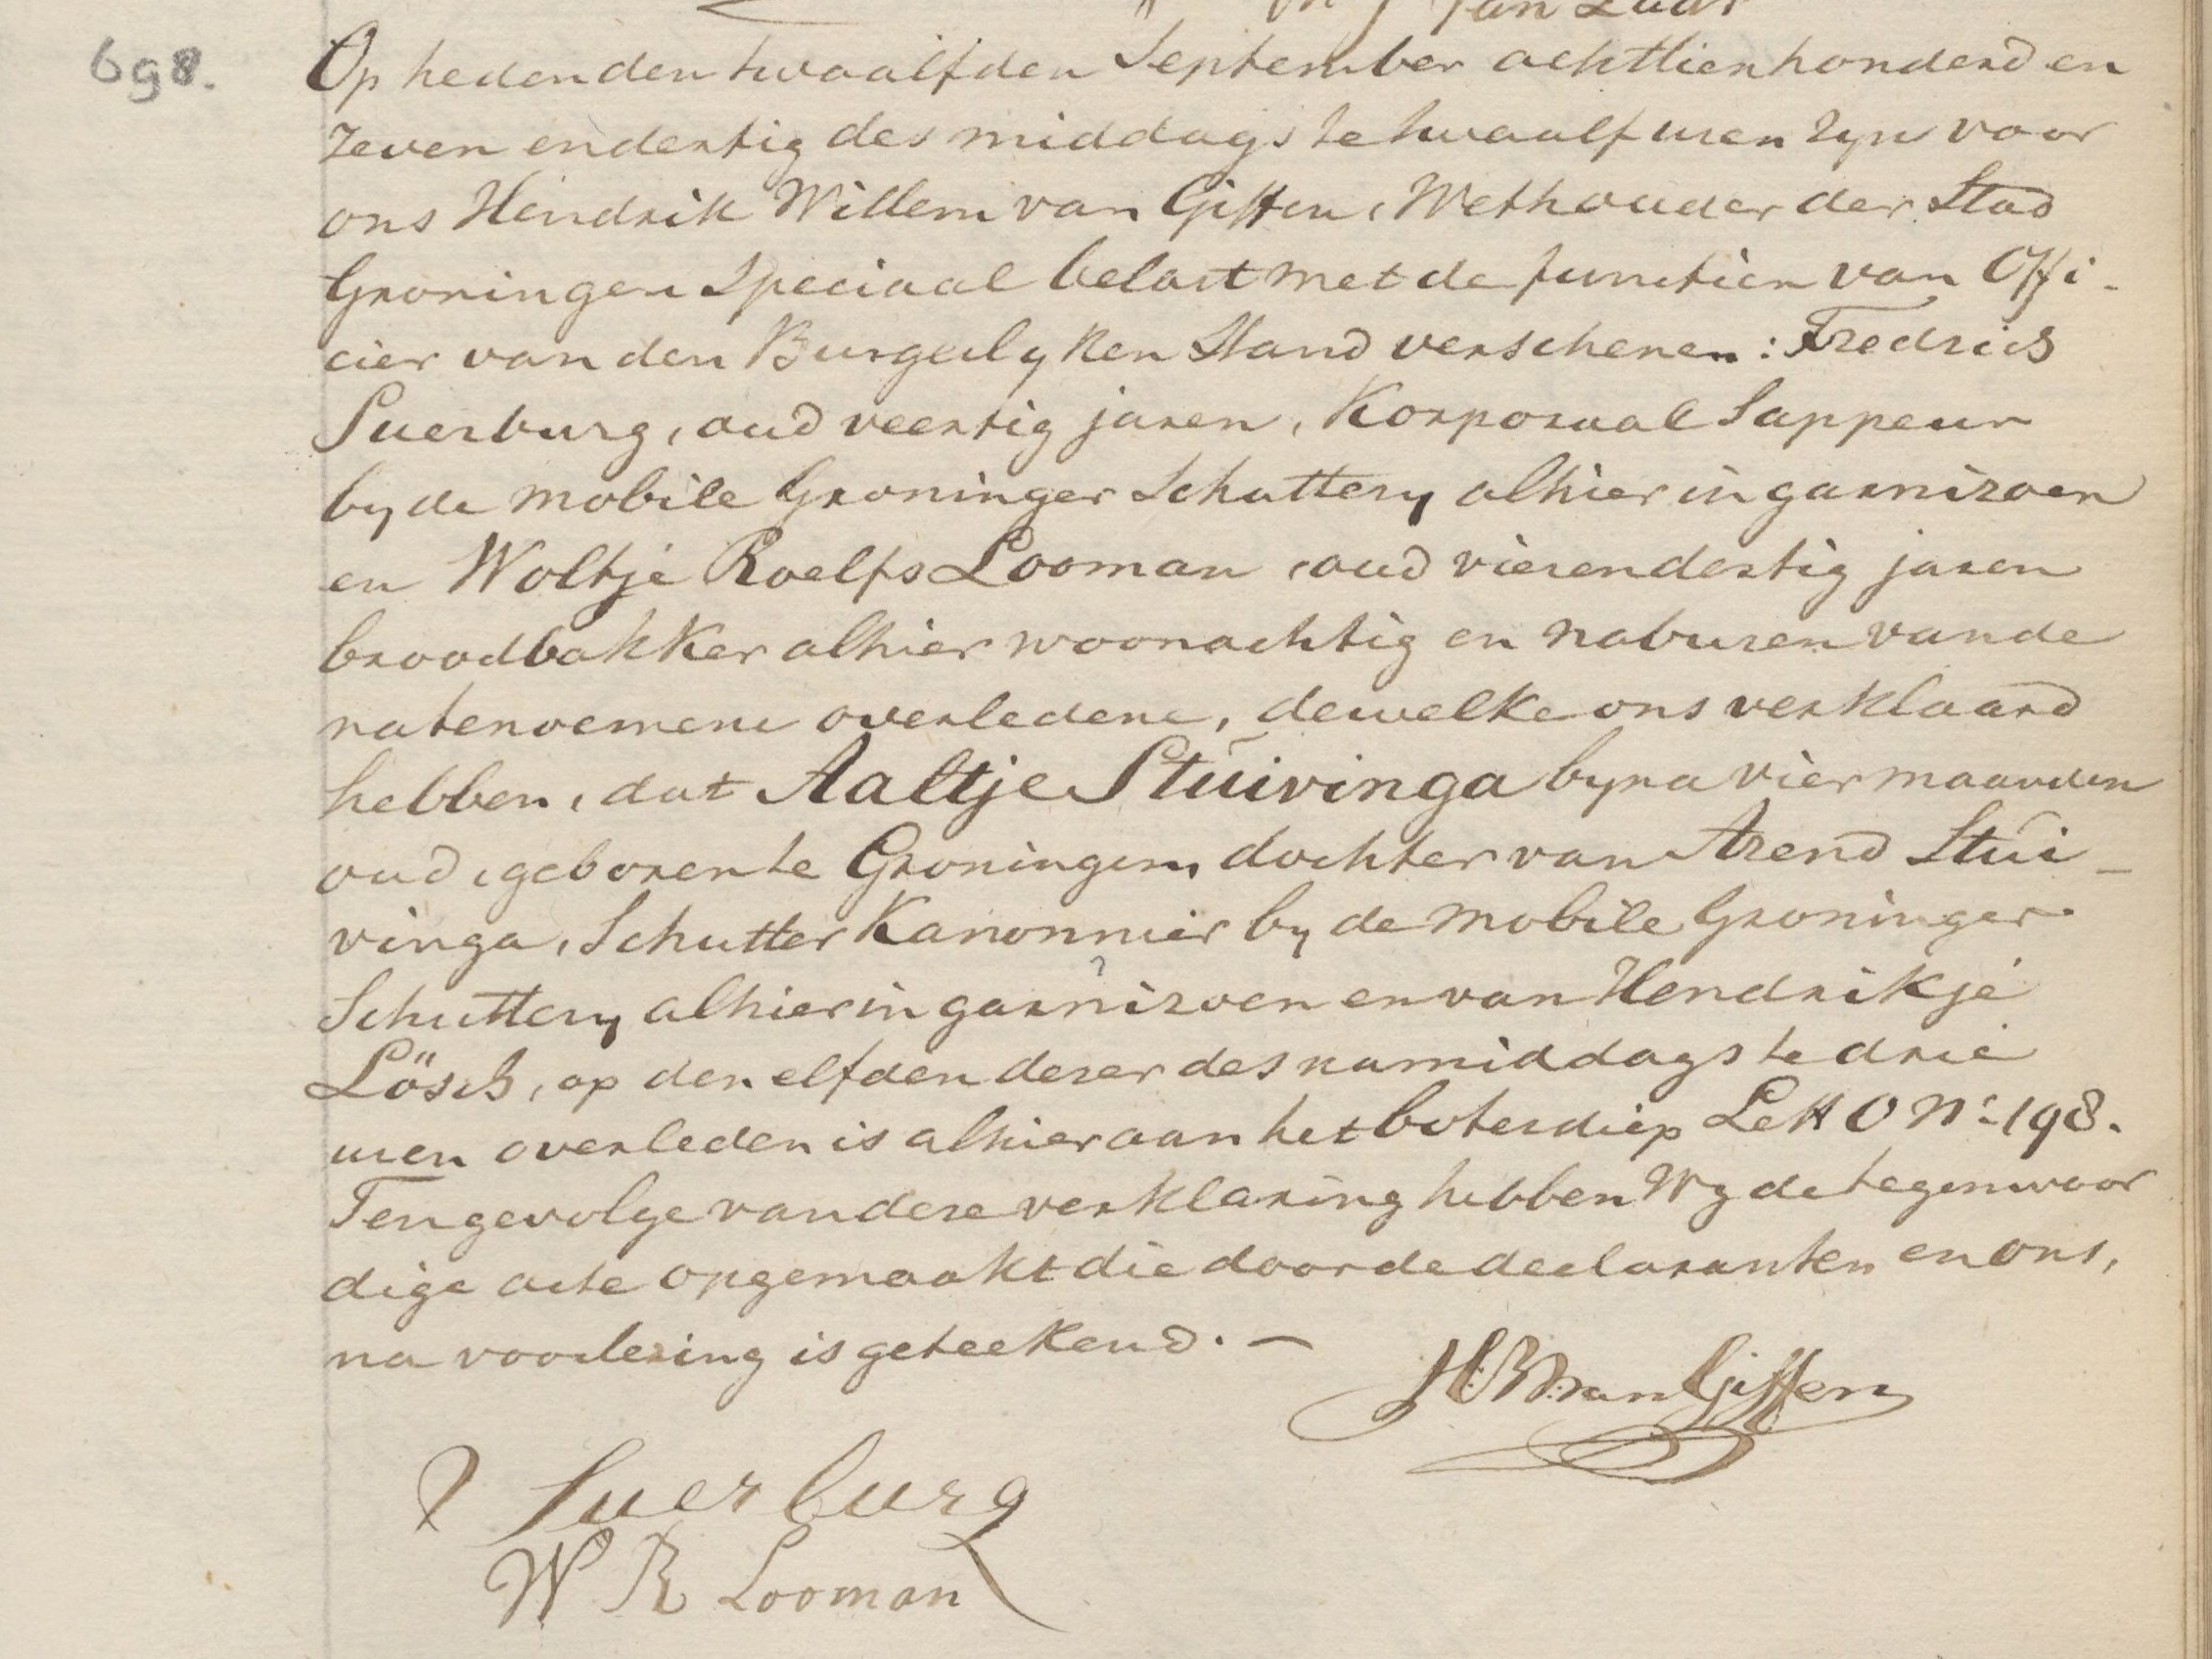 698.
Op heden den twaalfden September achttienhonderd en
zeven en dertig des middags te twaalf uren zyn voor
ons Hendrik Willem van Giffen, Wethouder der Stad
Groningen Speciaal belast met de functien van Offi-
cier van den Burgerlyken Stand verschenen: Fredrich
Suerburg, oud veertig jaren, Korporaal Sappeur
by de mobile Groninger Schuttery alhier in garnizoen
en Woltje Roelfs Looman, oud vierendertig jaren
broodbakker alhier woonachtig en naburen van de
natenoemene overledene, dewelke ons verklaard
hebben, dat Aaltje Stuivinga byna vier maanden
oud, geboren te Groningen, dochter van Arend Stui-
vinga, Schutter Kanonnier by de mobile Groninger
Schuttery alhier in garnizoen en van Hendrikje
Lösch, op den elfden dezer des namiddags te drie
uren overleden is alhier aan het boterdiep Lett O No. 198.
Ten gevolge van deze verklaring hebben Wy de tegenwoor
dige acte opgemaakt die door de declaranten en ons,
na voorlezing is geteekend. -
HW van Giffen
Suerburg
W R Looman